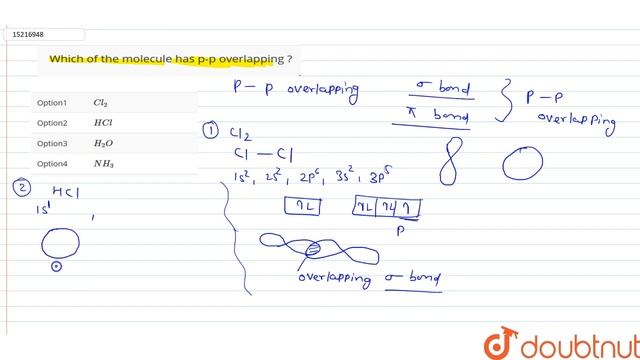 15216948
Which of the molecule has p-p overlapping ?
Option1 Cl₂
Option2 HCl
Option3 H₂O
Option4 NH₃
P - P overlapping
σ bond
π bond
P - P
overlapping
① Cl₂
Cl — Cl
1s², 2s², 2p⁶, 3s², 3p⁵
1L 1L 1L 1
P
overlapping σ bond
② HCl
1s¹ ,
doubtnut